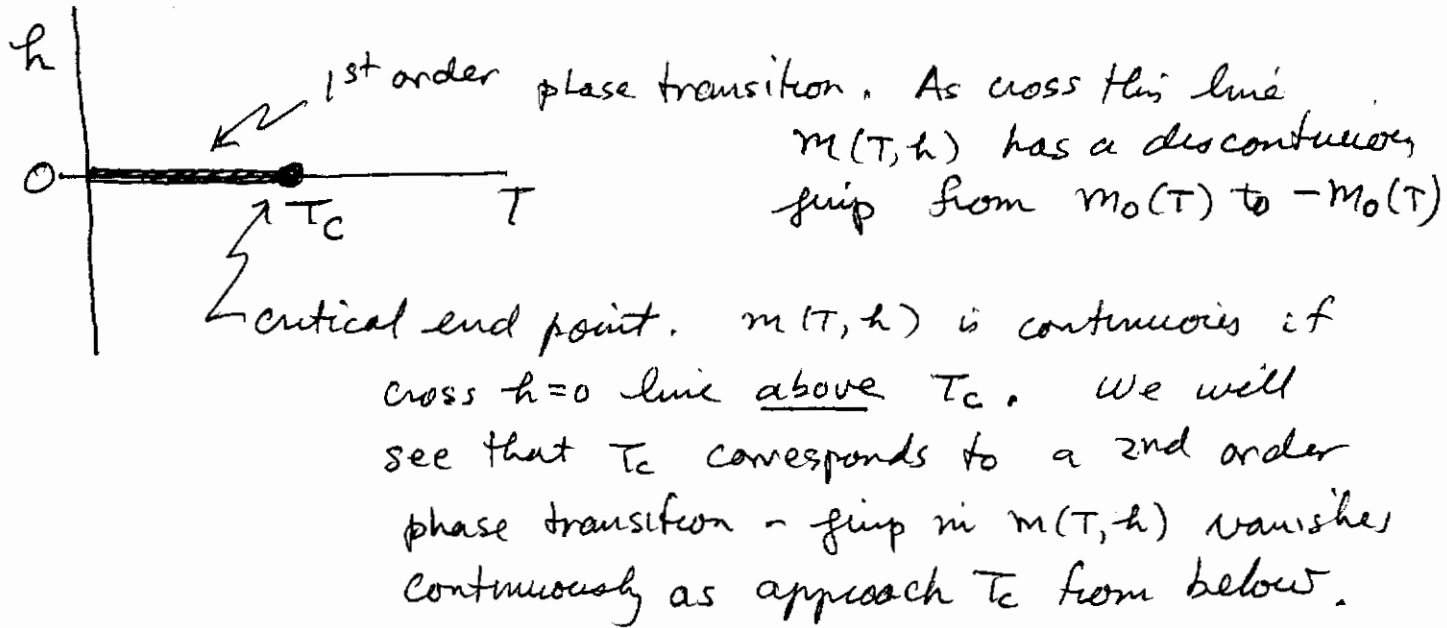 h
1st order phase transition. As cross this line
m(T,h) has a discontinuous
O T_c T jump from m_0(T) to -m_0(T)
critical end point. m(T,h) is continuous if
cross h=0 line above T_c. We will
see that T_c corresponds to a 2nd order
phase transition - jump in m(T,h) vanishes
continuously as approach T_c from below.